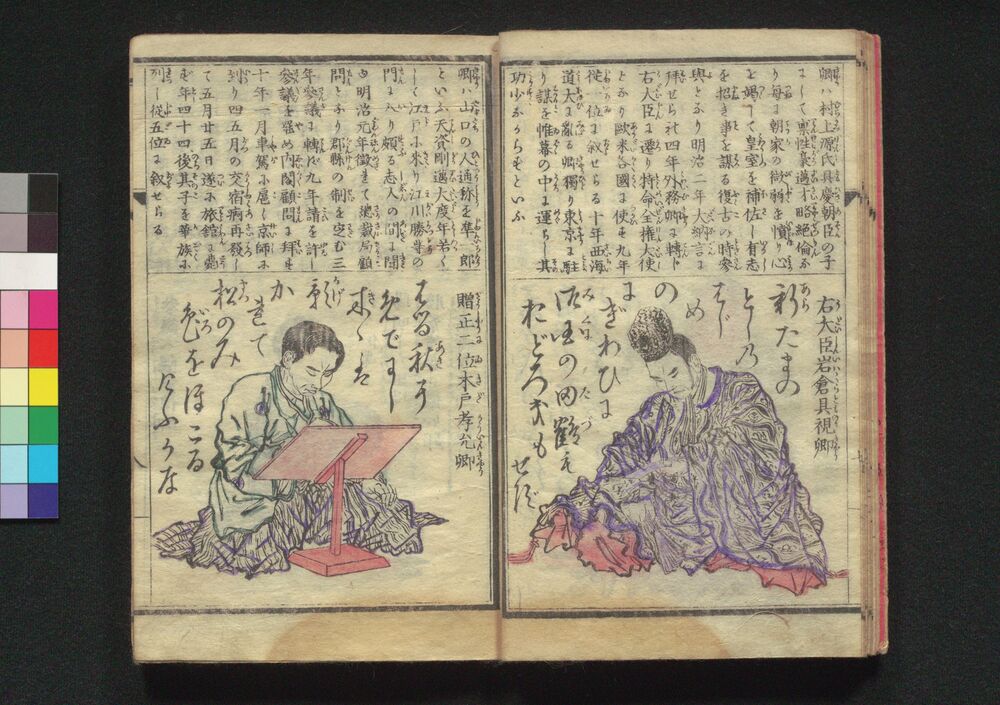 卿ハ村上源氏具慶朝臣の子
にして稟性豪邁才略絶倫か
り毎に朝家の微弱を憤り心
を竭して皇室を補佐し有志
を招き事を謀る復古の時参
與となり明治二年大納言に
拝せられ四年外務卿に轉し
右大臣に遷り持命全権大使
となり歐米各國に使も九年
従一位に叙せらる十年西海
道大に亂る卿獨り東京に駐
り謀を帷幕の中に運らし其
功少なからもといふ
右大臣岩倉具視卿
新たまの
としの
はじ
めの
にぎわひに
御田の田鶴も
おどろきも
せず
卿ハ山口の人通称を準一郎
といふ天資剛邁大度年若く
して江戸に来り江川勝等の
門に入り頗る志人の間に聞
ゆ明治元年徴さて總裁局顧
問となり郡縣の制を定む三
年参議に轉ル九年請を許し
参議を罷め内閣顧問に拝も
十年一月車駕に扈し京師に
到り四五月の交宿病再發し
て五月廿五日遂に旅館に薨
も年四十四後其子を華族に
列し従五位に叙せらる
贈正二位木戸孝允卿
はる秋を
めでにし
かれて
松のみ
色をほこる
けふかな